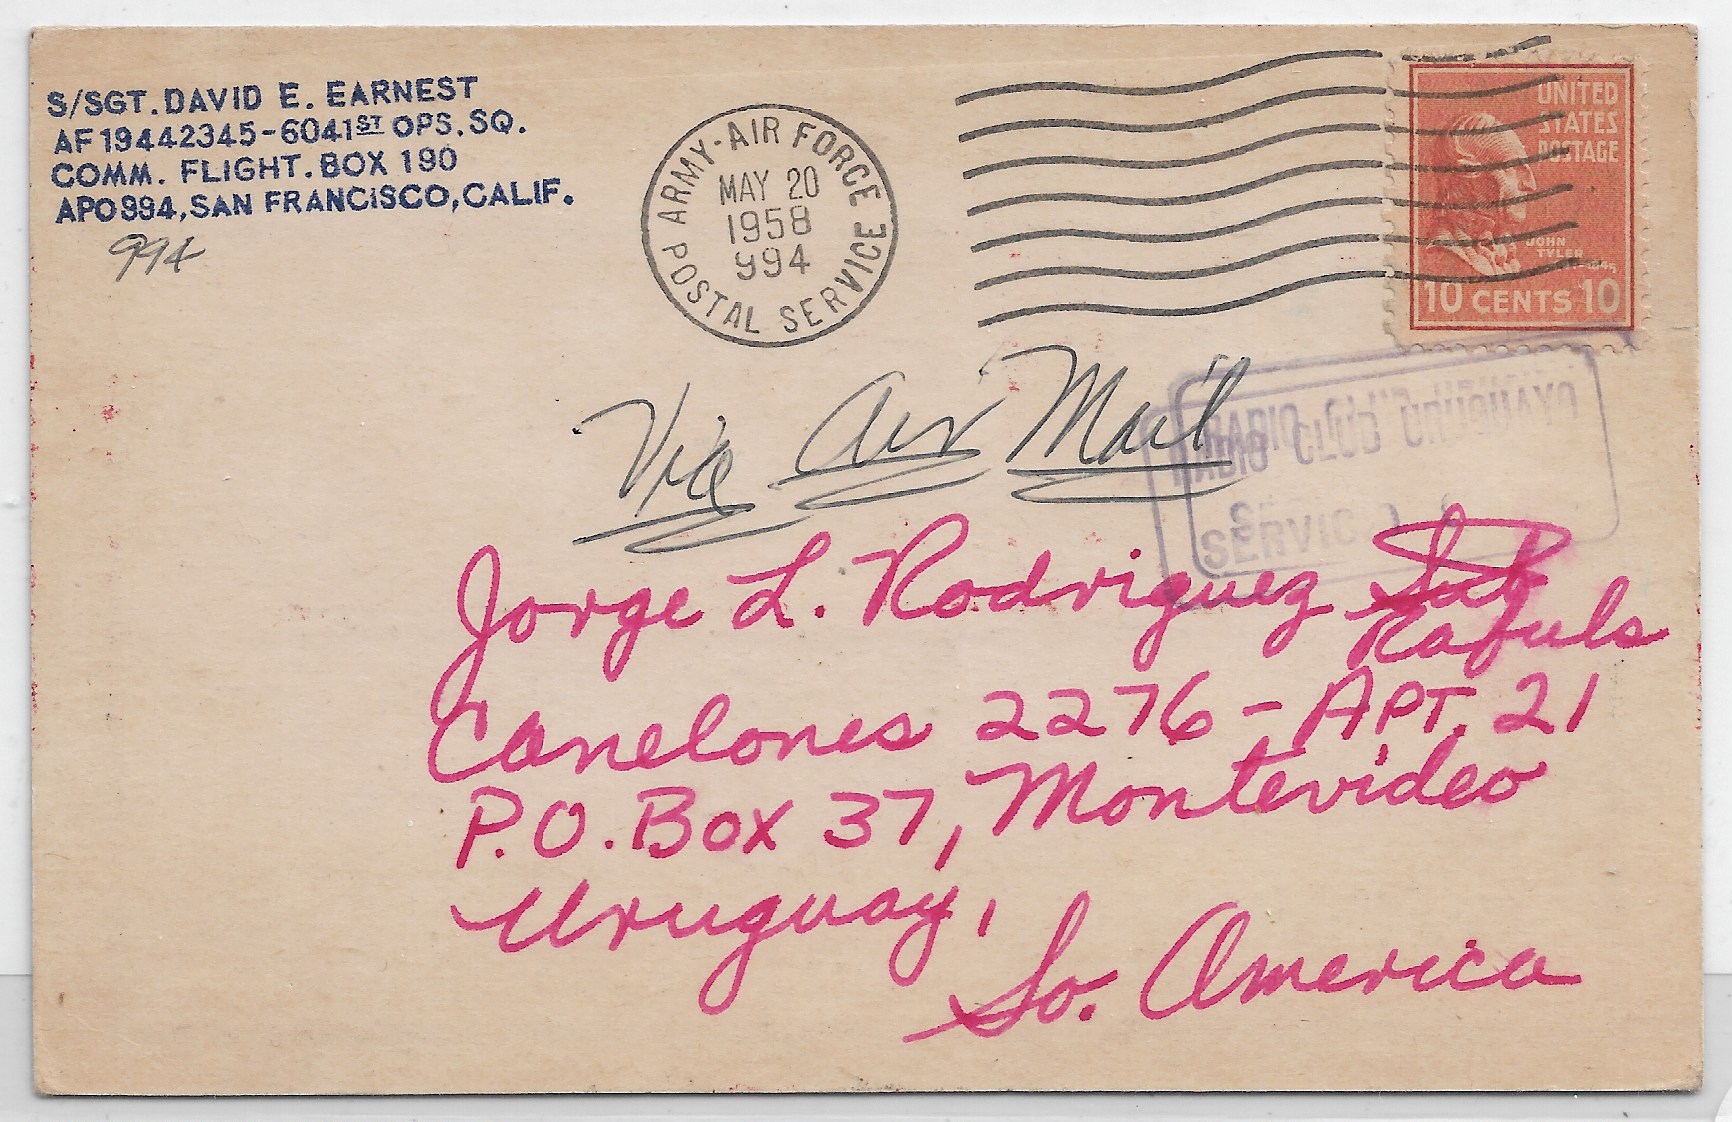 S/SGT. DAVID E. EARNEST
AF 19442345-6041ST OPS. SQ.
COMM. FLIGHT. BOX 190
APO 994, SAN FRANCISCO, CALIF.
994
ARMY-AIR FORCE
MAY 20
1958
994
POSTAL SERVICE
UNITED
STATES
POSTAGE
JOHN
TYLER
10 CENTS 10
Via Air Mail
RADIO CLUB URUGUAYO
Jorge L. Rodriguez
Rafuls
Canelones 2276 - APT. 21
P.O. Box 37, Montevideo
Uruguay,
So. America